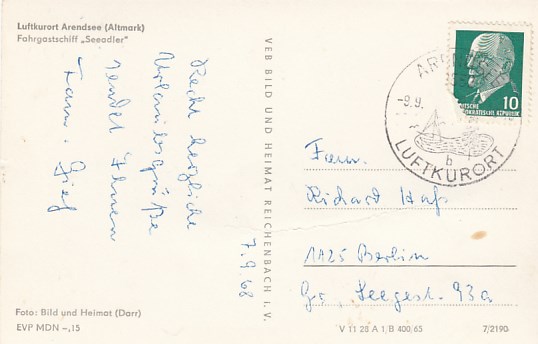 Luftkurort Arendsee (Altmark)
Fahrgastschiff „Seeadler"
Recht herzliche
Urlaubsgrüße
sendet Ihnen
Fam.
7.9.68
Foto: Bild und Heimat (Darr)
EVP MDN –,15
VEB BILD UND HEIMAT REICHENBACH I. V.
-9.9.
b
LUFTKURORT
10
DEUTSCHE
DEMOKRATISCHE REPUBLIK
Fam.
Richard
1125 Berlin
Gr. Seegest. 93a
V 11 28 A 1/B 400/65
7/2190